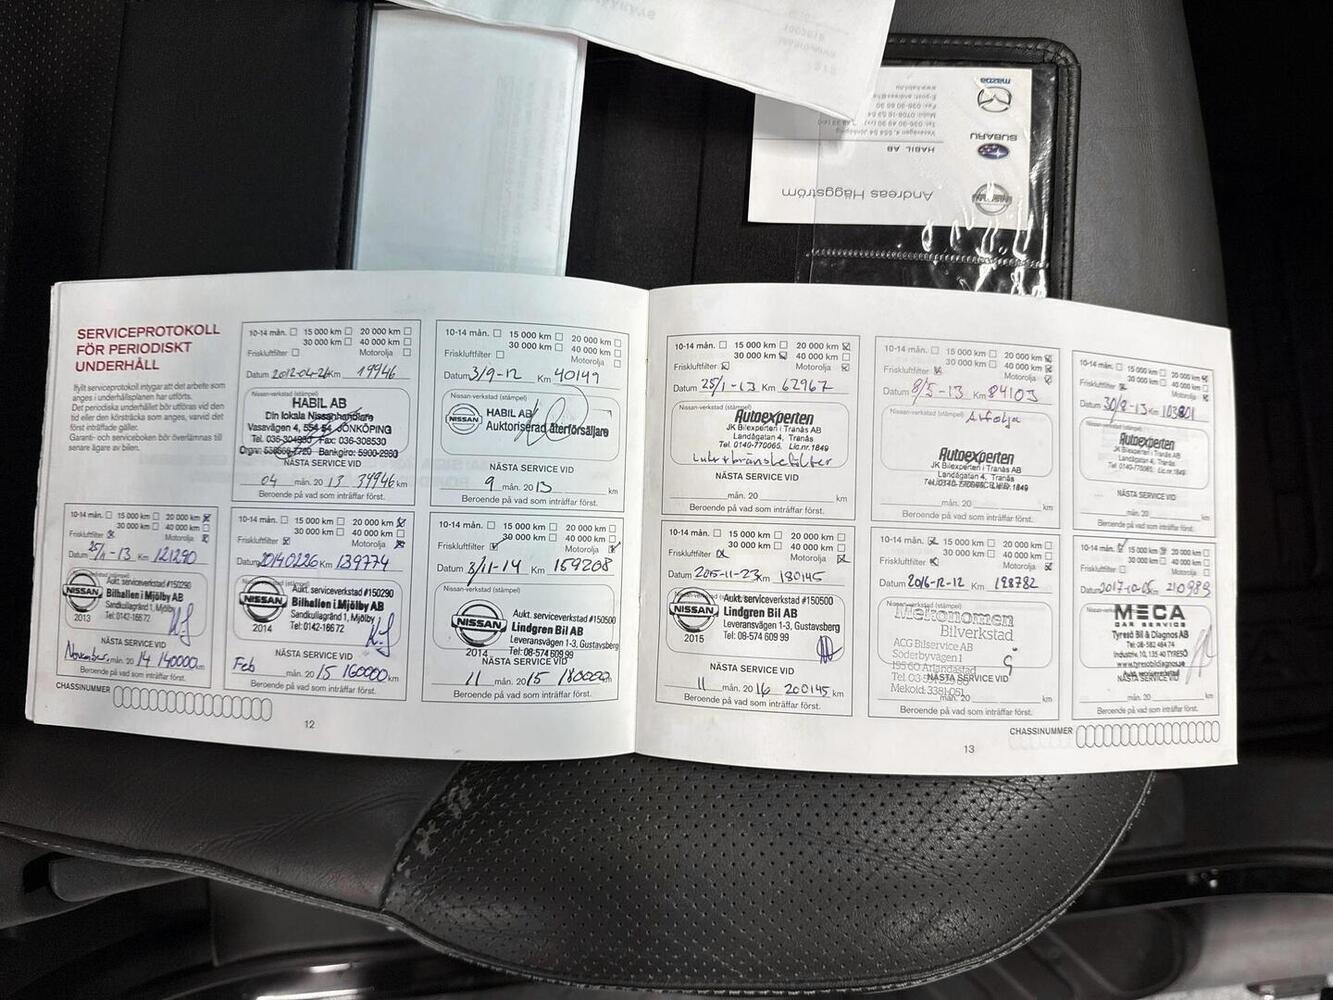 SERVICEPROTOKOLL
FÖR PERIODISKT
UNDERHÅLL
Ifyllt serviceprotokoll intygar att det arbete som
anges i underhållsplanen har utförts.
Det periodiska underhållet bör utföras vid den
tid eller den körsträcka som anges, varvid det
först inträffade gäller.
Garanti- och serviceboken bör överlämnas till
senare ägare av bilen.
10-14 mån. 15 000 km 20 000 km
30 000 km 40 000 km
Friskluftfilter Motorolja
Datum 2012-04-24 Km 19946
HABIL AB
Din lokala Nissanhandlare
Vasavägen 4, 554 54 JÖNKÖPING
Tel. 036-304930 Fax: 036-308530
Bankgiro: 5900-2980
NÄSTA SERVICE VID
04 mån. 20 13 39946 km
Beroende på vad som inträffar först.
10-14 mån. 15 000 km 20 000 km
30 000 km 40 000 km
Friskluftfilter Motorolja
Datum 3/9-12 Km 40149
Nissan-verkstad (stämpel)
NISSAN
HABIL AB
Auktoriserad återförsäljare
NÄSTA SERVICE VID
9 mån. 20 13 km
Beroende på vad som inträffar först.
10-14 mån. 15 000 km 20 000 km
30 000 km 40 000 km
Friskluftfilter Motorolja
Datum 25/11-13 Km 121290
Nissan-verkstad (stämpel)
NISSAN
2013
Aukt. serviceverkstad #150290
Bilhallen i Mjölby AB
Sandkullagränd 1, Mjölby
Tel: 0142-166 72
NÄSTA SERVICE VID
November mån. 20 14 140000 km
Beroende på vad som inträffar först.
10-14 mån. 15 000 km 20 000 km
30 000 km 40 000 km
Friskluftfilter Motorolja
Datum 20140226 Km 139774
Nissan-verkstad (stämpel)
NISSAN
2014
Aukt. serviceverkstad #150290
Bilhallen i Mjölby AB
Sandkullagränd 1, Mjölby
Tel: 0142-166 72
NÄSTA SERVICE VID
Feb mån. 20 15 160000 km
Beroende på vad som inträffar först.
10-14 mån. 15 000 km 20 000 km
30 000 km 40 000 km
Friskluftfilter Motorolja
Datum 3/11-14 Km 159208
Nissan-verkstad (stämpel)
NISSAN
2014
Aukt. serviceverkstad #150500
Lindgren Bil AB
Leveransvägen 1-3, Gustavsberg
Tel: 08-574 609 99
NÄSTA SERVICE VID
11 mån. 20 15 180000 km
Beroende på vad som inträffar först.
CHASSINUMMER
12
10-14 mån. 15 000 km 20 000 km
30 000 km 40 000 km
Friskluftfilter Motorolja
Datum 25/1-13 Km 62967
Nissan-verkstad (stämpel)
Autoexperten
JK Bilexperten i Tranås AB
Landågatan 4, Tranås
Tel. 0140-770065. Lic.nr.1849
Luft+bränslefilter
NÄSTA SERVICE VID
mån. 20 km
Beroende på vad som inträffar först.
10-14 mån. 15 000 km 20 000 km
30 000 km 40 000 km
Friskluftfilter Motorolja
Datum 8/5-13 Km 84103
Nissan-verkstad (stämpel)
Autoexperten
JK Bilexperten i Tranås AB
Landågatan 4, Tranås
mån. 20 km
Beroende på vad som inträffar först.
10-14 mån. 15 000 km 20 000 km
30 000 km 40 000 km
Friskluftfilter Motorolja
Datum 30/8-13 Km 103801
Nissan-verkstad (stämpel)
Autoexperten
JK Bilexperten i Tranås AB
Landågatan 4, Tranås
Tel. 0140-770065. Lic.nr.1849
NÄSTA SERVICE VID
mån. 20 km
Beroende på vad som inträffar först.
10-14 mån. 15 000 km 20 000 km
30 000 km 40 000 km
Friskluftfilter Motorolja
Datum 2015-11-23 Km 180145
NISSAN
2015
Aukt. serviceverkstad #150500
Lindgren Bil AB
Leveransvägen 1-3, Gustavsberg
Tel: 08-574 609 99
NÄSTA SERVICE VID
11 mån. 20 16 200145 km
Beroende på vad som inträffar först.
10-14 mån. 15 000 km 20 000 km
30 000 km 40 000 km
Friskluftfilter Motorolja
Datum 2016-12-12 Km 198782
Nissan-verkstad (stämpel)
Mekonomen
Bilverkstad
ACG Bilservice AB
Söderbyvägen 1
195 60 Arlandastad
NÄSTA SERVICE VID
Mekoid: 3381-051
mån. 20 km
Beroende på vad som inträffar först.
10-14 mån. 15 000 km 20 000 km
30 000 km 40 000 km
Friskluftfilter Motorolja
Datum 2017-10-05 Km 210989
MECA
CAR SERVICE
Tyresö Bil & Diagnos AB
Tel: 08-582 484 74
Industriv. 10, 135 40 TYRESÖ
www.tyresobildiagnos.se
mån. 20 km
Beroende på vad som inträffar först.
CHASSINUMMER
13
Andreas Häggström
HABIL AB
NISSAN
SUBARU
mazda